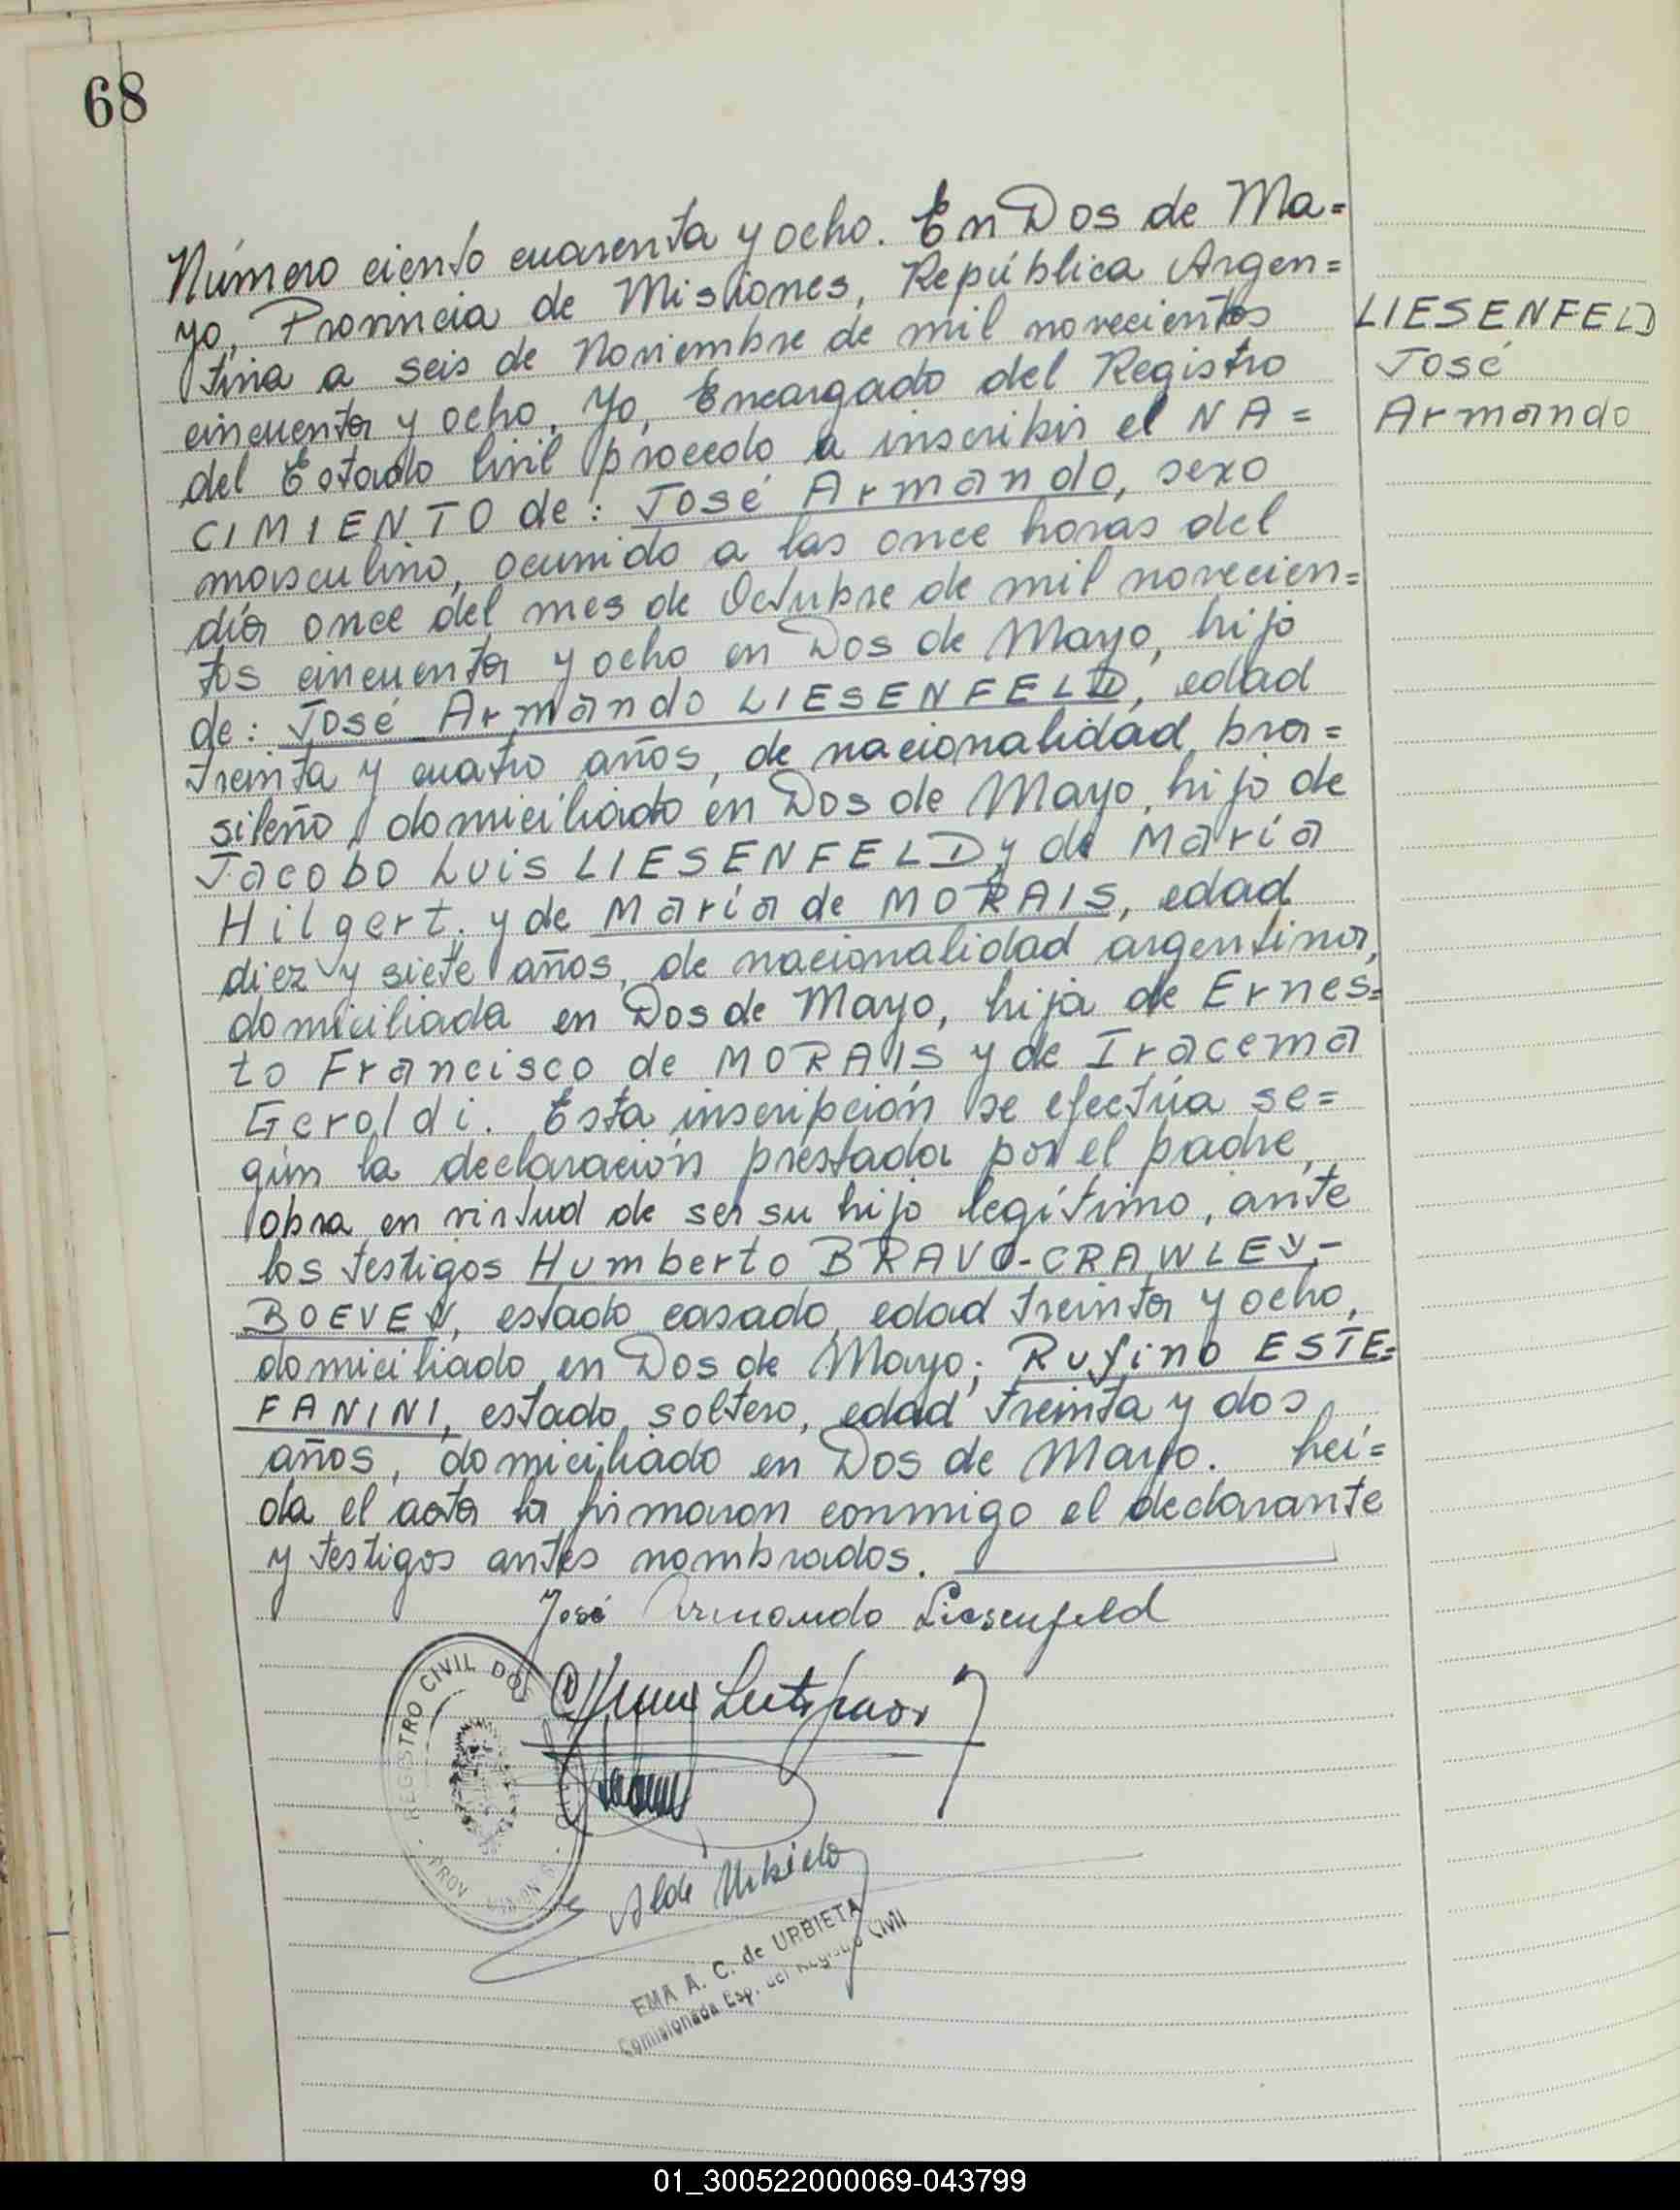 68
Número ciento cuarenta y ocho. En Dos de Ma=
yo, Provincia de Misiones, República Argen=
tina a seis de Noviembre de mil novecientos
cincuenta y ocho, Yo, Encargado del Registro
del Estado Civil procedo a inscribir el NA=
CIMIENTO de: José Armando, sexo
masculino, ocurrido a las once horas del
día once del mes de Octubre de mil novecien=
tos cincuenta y ocho en Dos de Mayo, hijo
de: José Armando LIESENFELD, edad
treinta y cuatro años, de nacionalidad bra=
sileño, domiciliado en Dos de Mayo, hijo de
Jacobo Luis LIESENFELD y de María
Hilgert. y de María de MORAIS, edad
diez y siete años, de nacionalidad argentina,
domiciliada en Dos de Mayo, hija de Ernes=
to Francisco de MORAIS y de Iracema
Geroldi. Esta inscripción se efectúa se=
gún la declaración prestada por el padre,
obra en virtud de ser su hijo legítimo, ante
los testigos Humberto BRAVO-CRAWLEY-
BOEVEY, estado casado, edad treinta y ocho,
domiciliado en Dos de Mayo; Rufino ESTE=
FANINI, estado soltero, edad treinta y dos
años, domiciliado en Dos de Mayo. Leí=
da el acta la firmaron conmigo el declarante
y testigos antes nombrados.
LIESENFELD
José
Armando
José Armando Liesenfeld
REGISTRO CIVIL DOS
PROV. MISIONES
EMA A. C. de URBIETA
Comisionada Esp. del Registro Civil
01_300522000069-043799